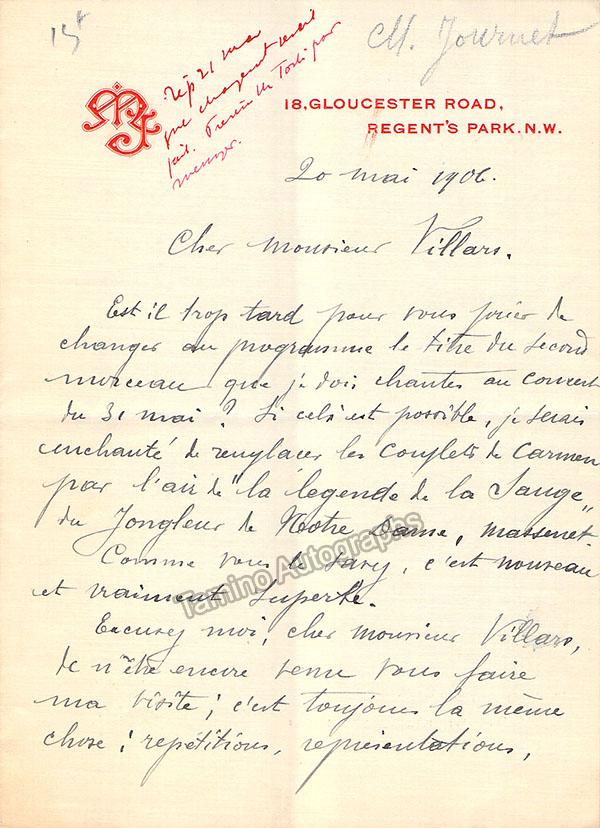 15f
M. Journet
Rép 21 mai
que changement serait
fait.
MJ
18, GLOUCESTER ROAD,
REGENT'S PARK. N.W.
20 mai 1906.
Cher Monsieur Villars.
Est il trop tard pour vous prier de
changer au programme le titre du second
morceau que je dois chanter au concert
du 31 mai? Si cela est possible, je serais
enchanté de remplacer les couplets de Carmen
par l'air de "la légende de la Sauge"
du Jongleur de Notre Dame, Massenet.
Comme vous le savez, c'est nouveau
et vraiment superbe.
Excusez moi, cher Monsieur Villars,
de n'être encore venu vous faire
ma visite; c'est toujours la même
chose: répétitions, représentations,
Tamino Autographs